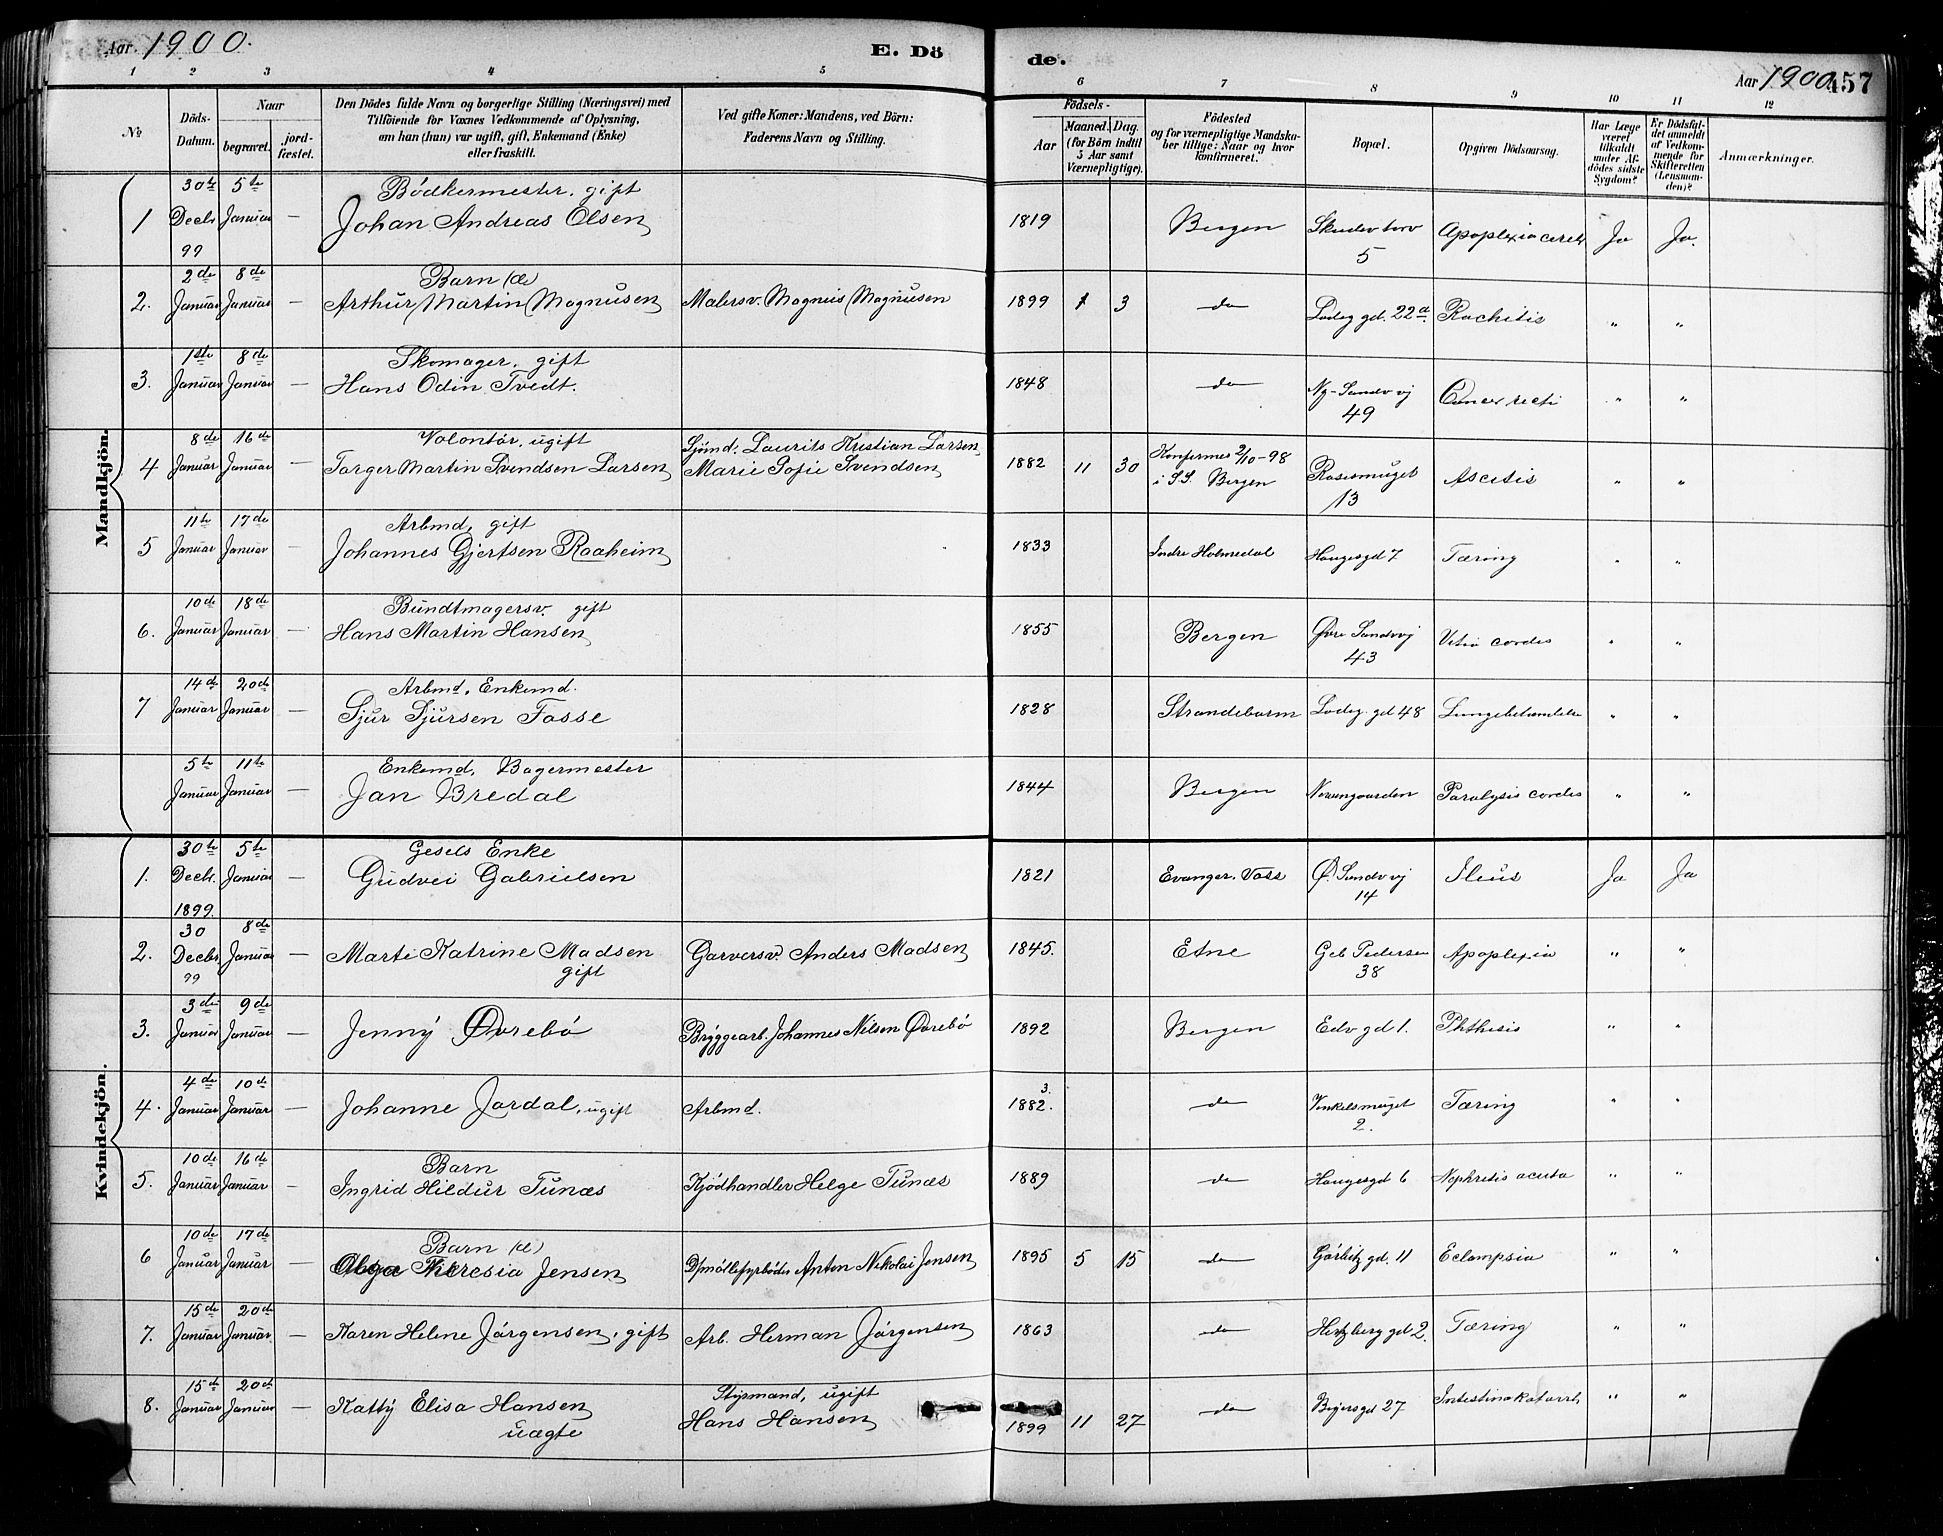 Aar. 1900.
E. Dö
de.
Aar 1900.
457
1 2 3 4 5 6 7 8 9 10 11 12
No
Döds-Datum.
Naar
begravet.
jord-fæstet.
Den Dödes fulde Navn og borgerlige Stilling (Næringsvei) med
Tilföiende for Voxnes Vedkommende af Oplysning,
om han (hun) var ugift, gift, Enkemand (Enke)
eller fraskilt.
Ved gifte Koner: Mandens, ved Börn:
Faderens Navn og Stilling.
Födsels-
Aar
Maaned. Dag.
(for Börn indtil
5 Aar samt
Værnepligtige).
Födested
og for værnepligtige Mandska-
ber tillige: Naar og hvor
konfirmeret.
Bopæl.
Opgiven Dödsaarsag.
Har Læge
været
tilkaldt
under Af-
dödes sidste
Sygdom?
Er Dödsfal-
det anmeldt
af Vedkom-
mende for
Skifteretten
(Lensman-
den)?
Anmærkninger.
Mandkjön.
1 30te Decbr 99 5te Januar — Bödkermester, gift
Johan Andreas Olsen 1819 Bergen 5 Apoplexia cereb Ja Ja.
2. 2de Januar 8de Januar — Barn (æ)
Arthur Martin Magnusen Malersv. Magnus Magnusen 1899 1 3 do Ladeg gd. 22d. Rachitis " "
3. 1ste Januar 8de Januar — Skomager, gift
Hans Odin Tvedt. 1848 do Ny-Sandvvj 49 Cancer recti " "
4 8de Januar 16de Januar — Volontör, ugift
Torger Martin Svendsen Larsen Laurits Kristian Larsen
Marie Sofie Svendsen 1882 11 30 Konfirmes 2/10-98
i S.S. Bergen Rosesmuget 13 Ascitis " "
5 11te Januar 17de Januar — Arbmd, gift
Johannes Gjertsen Raaheim 1833 Indre Holmedal Haugesgd 7 Tæring " "
6. 10de Januar 18de Januar — Bundtmagersv. gift
Hans Martin Hansen 1855 Bergen Øvre Sandvvj 43 Vitio cordis " "
7 14de Januar 20de Januar — Arbmd, Enkemd.
Sjur Sjursen Fosse 1828 Strandebarm Ladeg. gd 48 Lungebetændelse " "
5te Januar 11te Januar — Enkemd, Bagermester
Jan Bredal 1844 Bergen Paralysis cordis " "
Kvindekjön.
1. 30te Decbr. 1899. 5te Januar — Gesels Enke
Gudvei Gabrielsen 1821 Evanger, Voss Ø. Sandvvj 14 Ileus Ja Ja
2. 30 Decbr 99 8de Januar — Marte Katrine Madsen
gift Garversv. Anders Madsen 1845. Etne Geb Pedersen 38 Apoplexia " "
3. 3de Januar 9de Januar — Jenny Øvrebö Bryggearb. Johannes Nilsen Øvrebö 1892 Bergen Edv gd 1. Phthisis " "
4. 4de Januar 10de Januar — Johanne Jordal, ugift Arbmd. 3.
1882. do Vinkelsmuget 2. Tæring " "
5. 10de Januar 16de Januar — Barn
Ingrid Hildur Tunæs Kjödhandler Helge Tunæs 1889 do Haugesgd 6 Nephritis acuta " "
6 10de Januar 17de Januar — Barn (æ)
Olga Theresia Jensen Dpmöllefyrböder Anton Nikolai Jensen 1895 5 15 do Görbitz gd. 11 Eclampsia " "
7. 15de Januar 20de Januar — Karen Helene Jörgensen, gift Arb. Herman Jörgensen 1863 do Hertzberg gd 2. Tæring " "
8. 15de Januar 20de Januar — Katty Elisa Hansen
uægte Styrmand, ugift
Hans Hansen 1899 11 27 do 27 Intestinakatarrh " "